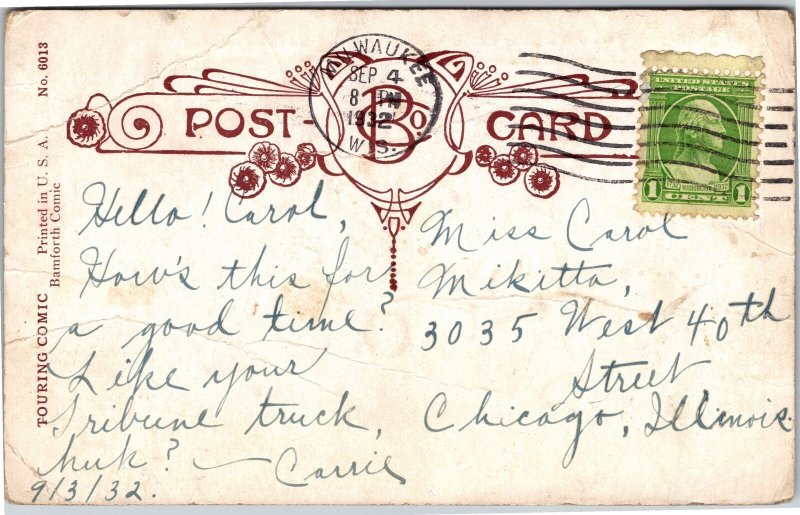 No. 6013
Printed in U. S. A.
Bamforth Comic
TOURING COMIC
POST CARD
B Co.
MILWAUKEE
SEP 4
8 - PM
1932
WIS.
UNITED STATES
POSTAGE
1732 WASHINGTON 1932
1 CENT 1
Hello! Carol,
How's this for
a good time?
Like your
Tribune truck,
huh? — Carrie
9/3/32.
Miss Carol
Mikitta,
3035 West 40th
Street
Chicago, Illinois.